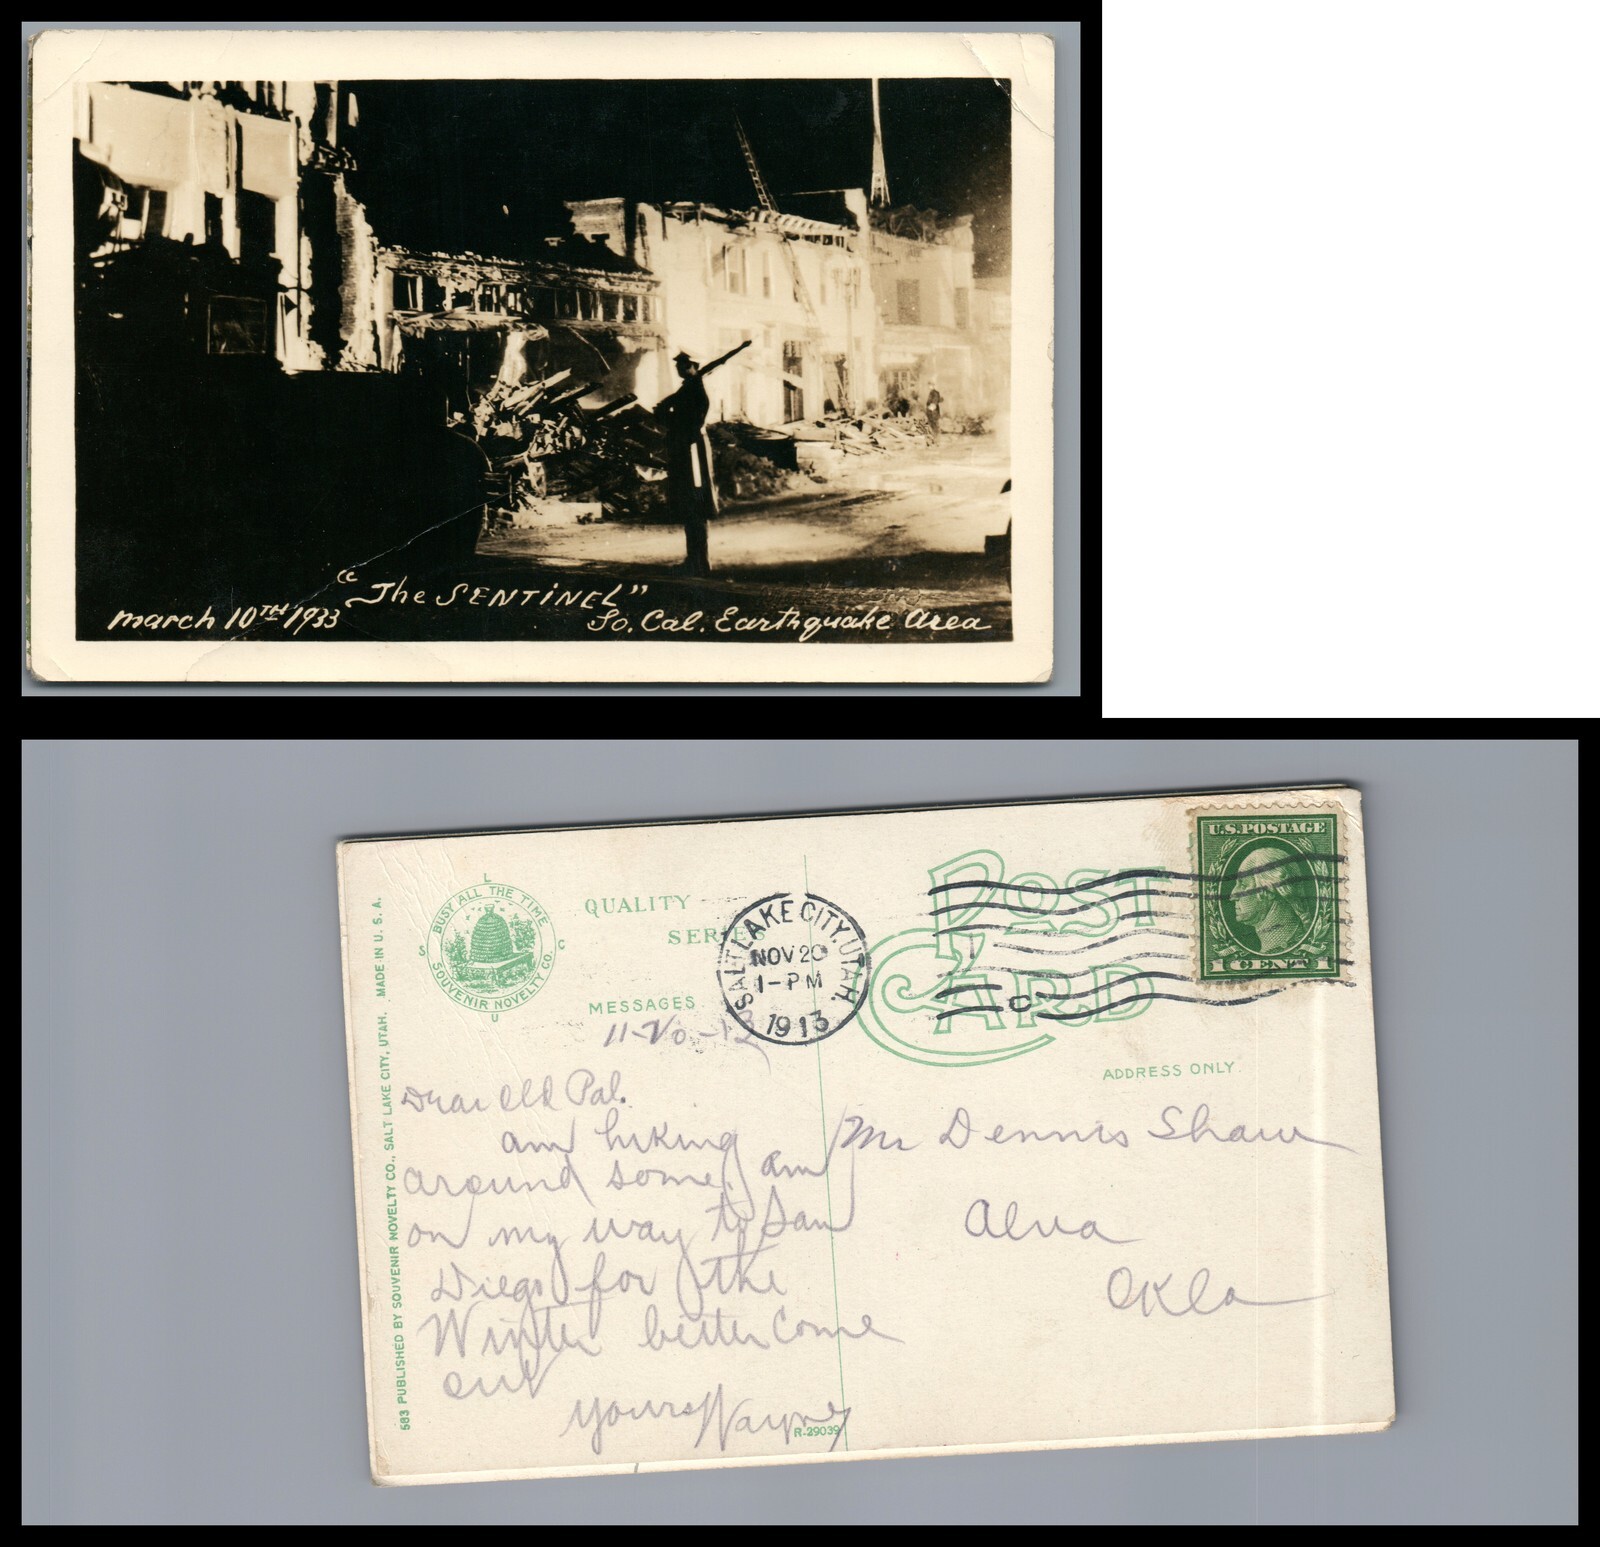 "The SENTINEL"
March 10TH 1933 So. Cal. Earthquake Area
583 PUBLISHED BY SOUVENIR NOVELTY CO., SALT LAKE CITY, UTAH. MADE IN U.S.A.
L
S C
U
BUSY ALL THE TIME
SOUVENIR NOVELTY CO.
QUALITY
SERIES
MESSAGES
SALT LAKE CITY, UTAH.
NOV 20
1-PM
1913
POST
CARD
U.S. POSTAGE
1 CENT 1
C
ADDRESS ONLY.
Dear Old Pal.
am hiking
around some, am
on my way to San
Diego for the
Winter better come
out
yours Wayne
R-29039
Mr Dennis Shaw
Alva
Okla